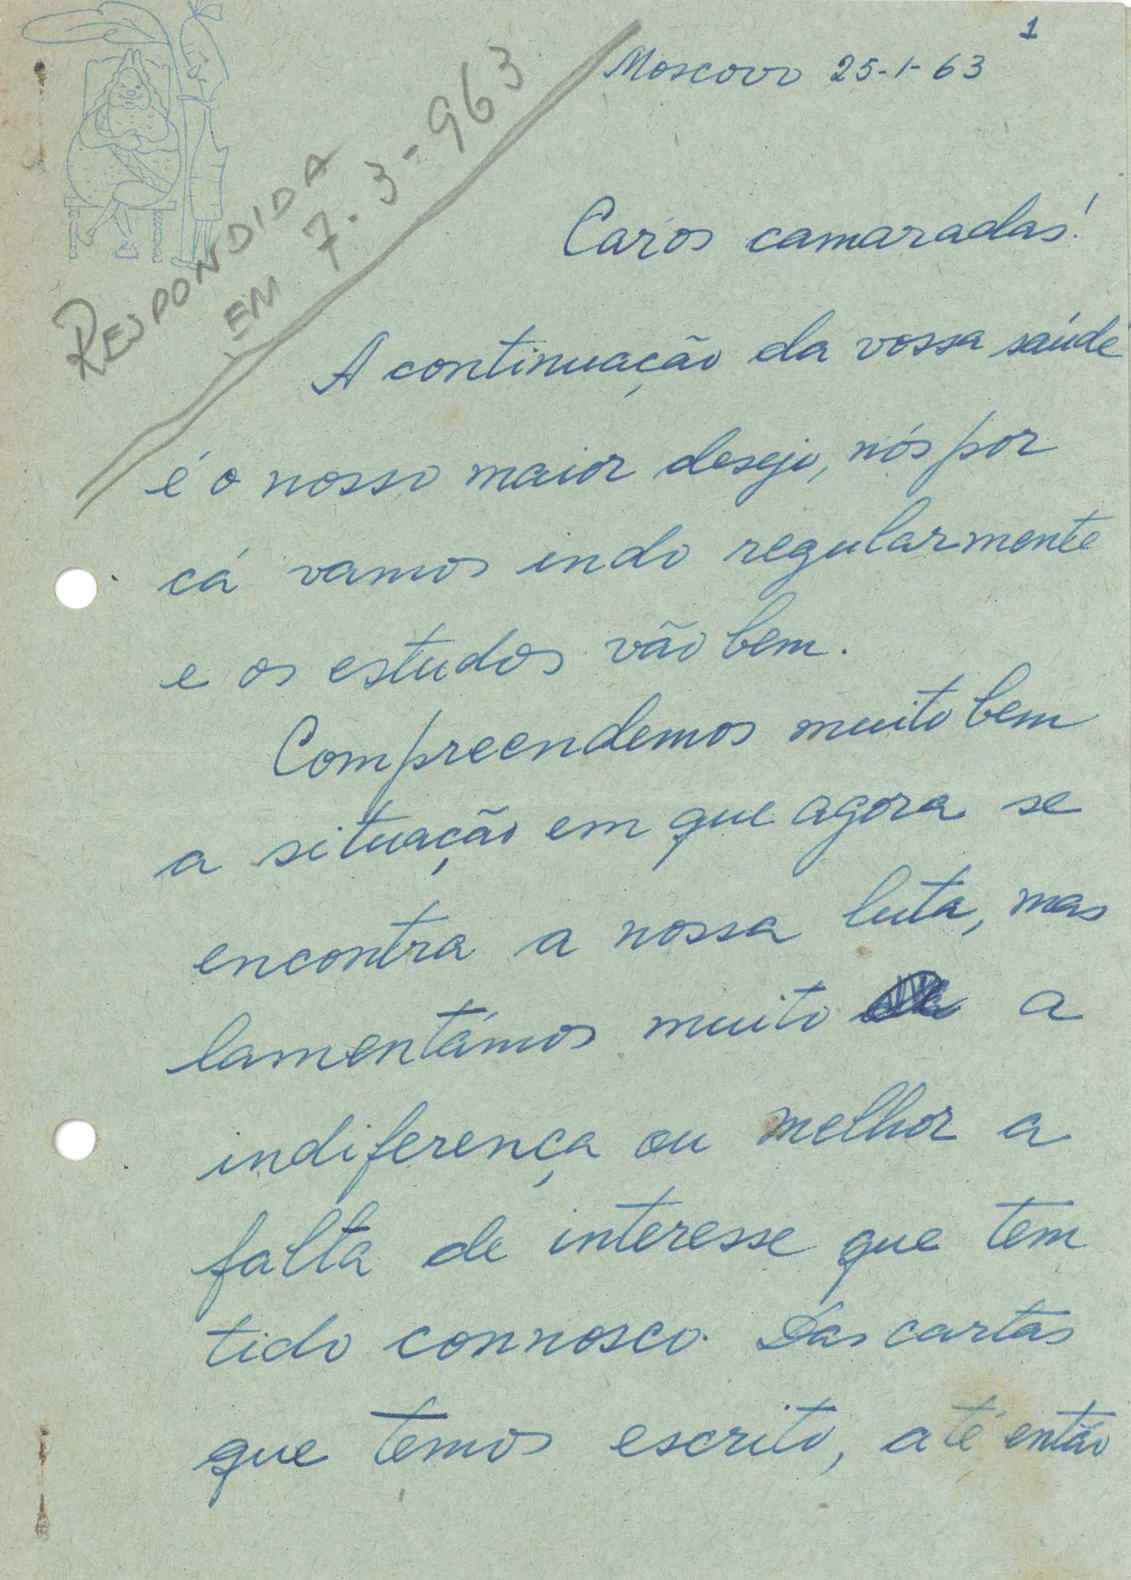 1
Moscovo 25-1-63
RESPONDIDA
EM 7-3-963
Caros camaradas!
A continuação da vossa saúde
é o nosso maior desejo, nós por
cá vamos indo regularmente
e os estudos vão bem.
Compreendemos muito bem
a situação em que agora se
encontra a nossa luta, mas
lamentámos muito a
indiferença ou melhor a
falta de interesse que tem
tido connosco. Das cartas
que temos escrito, até então